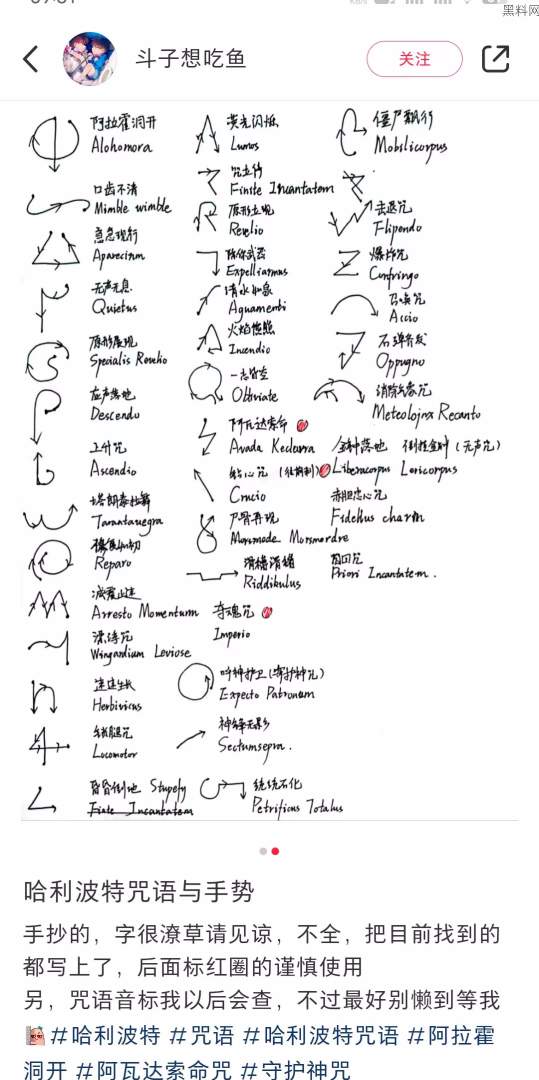 黑料网
斗子想吃鱼
关注
阿拉霍洞开
Alohomora
口齿不清
Mimble wimble
急急现行
Aparecium
无声无息
Quietus
原形展现
Specialis Revelio
应声落地
Descendo
上升咒
Ascendio
塔朗泰拉舞
Tarantauegra
恢复如初
Reparo
减震止速
Arresto Momentum
漂浮咒
Wingardium Leviose
速速生长
Herbivicus
锁腿咒
Locomotor
昏昏倒地 Stupefy
Finite Incantatem
荧光闪烁
Lumos
咒立停
Finite Incantatem
原形立现
Revelio
除你武器
Expelliarmus
清水如泉
Aguamenti
火焰熊熊
Incendio
一忘皆空
Obliviate
阿瓦达索命
Avada Kedavra
钻心咒
Crucio
尸骨再现
Morsmode Morsmordre
滑稽滑稽
Riddikulus
夺魂咒
Imperio
呼神护卫(守护神咒)
Expecto Patronum
神锋无影
Sectumsepra.
统统石化
Petrificus Totalus
僵尸飘行
Mobilicorpus
击退咒
Flipendo
爆炸咒
Confringo
召唤咒
Accio
万弹齐发
Oppugno
消除气象咒
Meteolojinx Recanto
金钟落地 倒挂金钟(无声咒)
Liberacorpus Levicorpus
赤胆忠心咒
Fidelius charm
闪回咒
Priori Incantatem.
哈利波特咒语与手势
手抄的，字很潦草请见谅，不全，把目前找到的
都写上了，后面标红圈的谨慎使用
另，咒语音标我以后会查，不过最好别懒到等我
#哈利波特 #咒语 #哈利波特咒语 #阿拉霍
洞开 #阿瓦达索命咒 #守护神咒